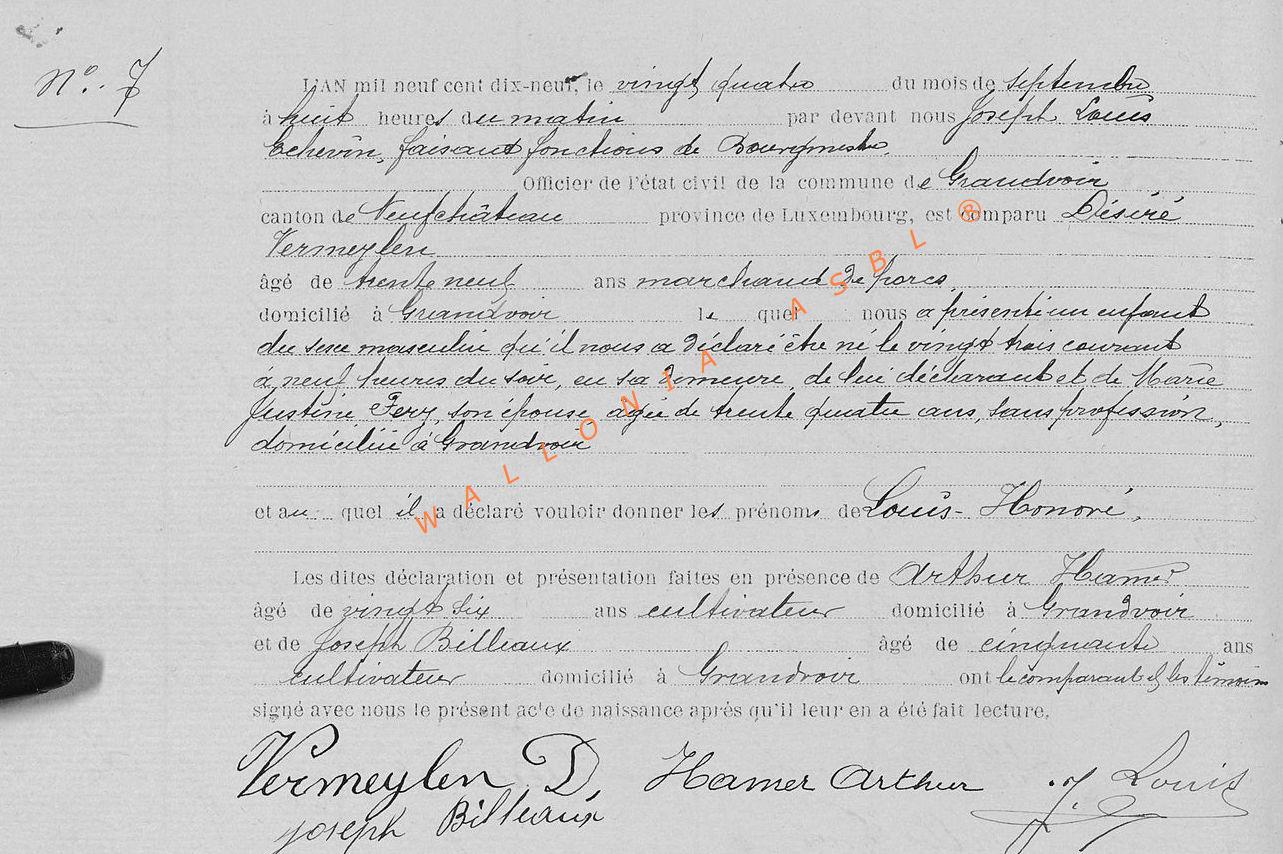 N° 7
L'AN mil neuf cent dix-neuf, le vingt quatre du mois de septembre
à huit heures du matin par devant nous Joseph Louis
Echevin, faisant fonctions de Bourgmestre,
Officier de l'état civil de la commune de Grandvoir
canton de Neufchâteau province de Luxembourg, est comparu Désiré
Vermeylen
âgé de trente neuf ans marchand de porcs,
domicilié à Grandvoir le quel nous a présenté un enfant
du sexe masculin qu'il nous a déclaré être né le vingt trois courant
à neuf heures du soir, en sa demeure, de lui déclarant et de Marie
Justine, son épouse, agée de trente quatre ans, sans profession,
domiciliée à Grandvoir
et au quel il a déclaré vouloir donner les prénoms de Louis-Honoré,
Les dites déclaration et présentation faites en présence de Arthur Hamer
âgé de vingt six ans cultivateur domicilié à Grandvoir
et de Joseph Billeaux âgé de cinquante ans
cultivateur domicilié à Grandvoir ont le comparant et les témoins
signé avec nous le présent acte de naissance après qu'il leur en a été fait lecture.
Vermeylen D. Hamer Arthur J. Louis
Joseph Billeaux
WALLONIA ASBL ®